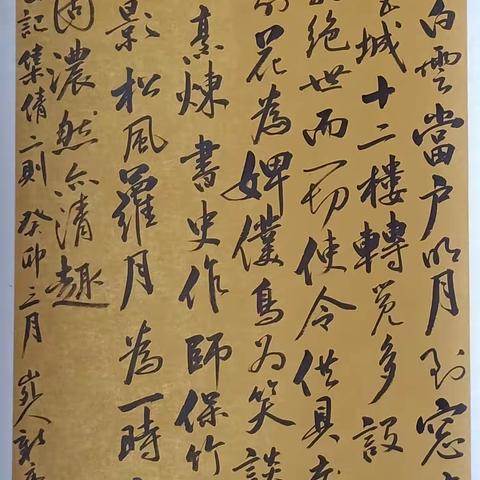 白雲當户明月到窓
城十二樓轉覺多設
絕世而一切使令供具
花為婢僕鳥為笑談
烹煉書史作師保竹
景松風蘿月為一時
固濃然亦清趣
記集倩二則癸卯三月